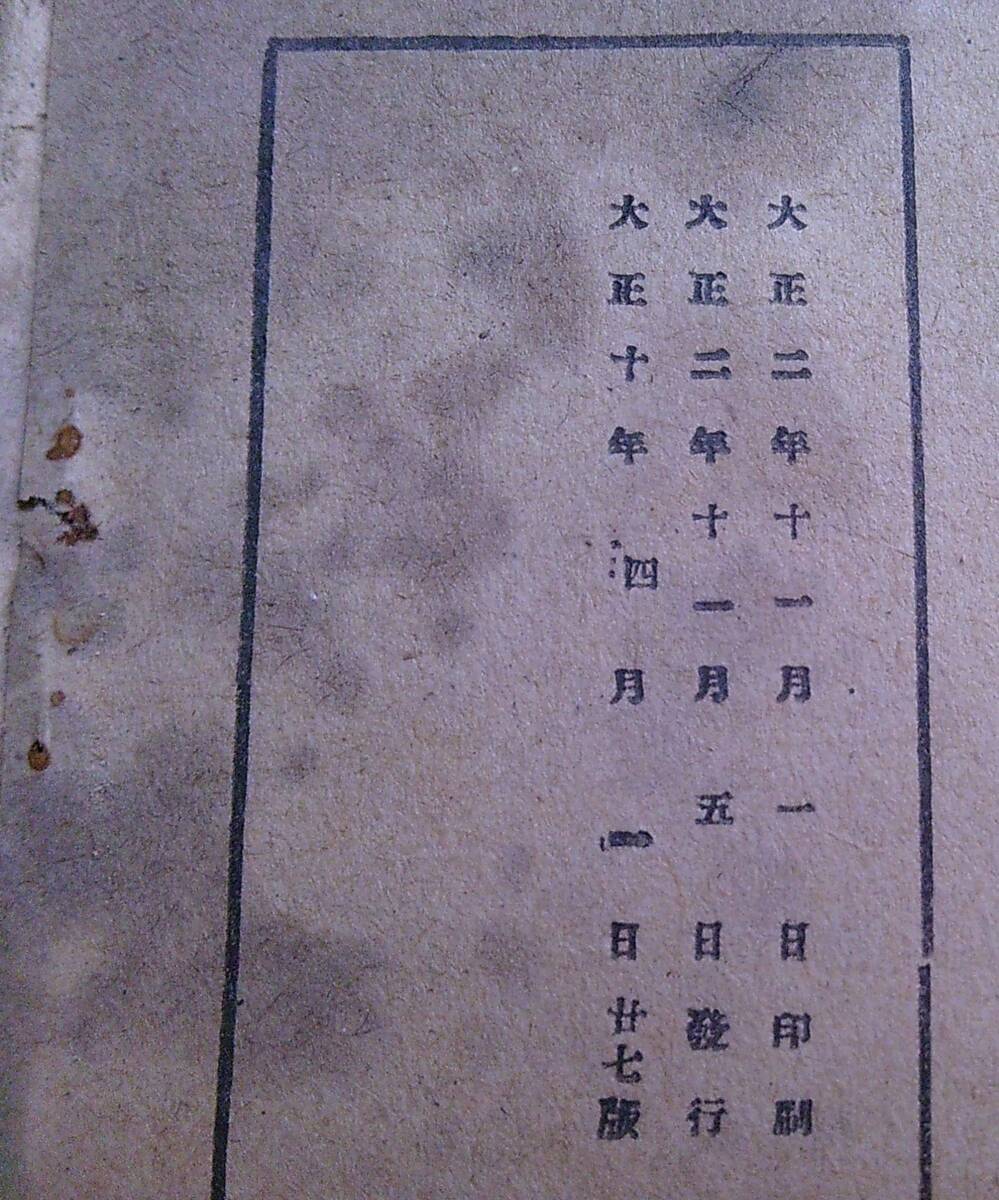 大正二年十一月一日印刷
大正二年十一月五日發行
大正十年四月一日廿七版